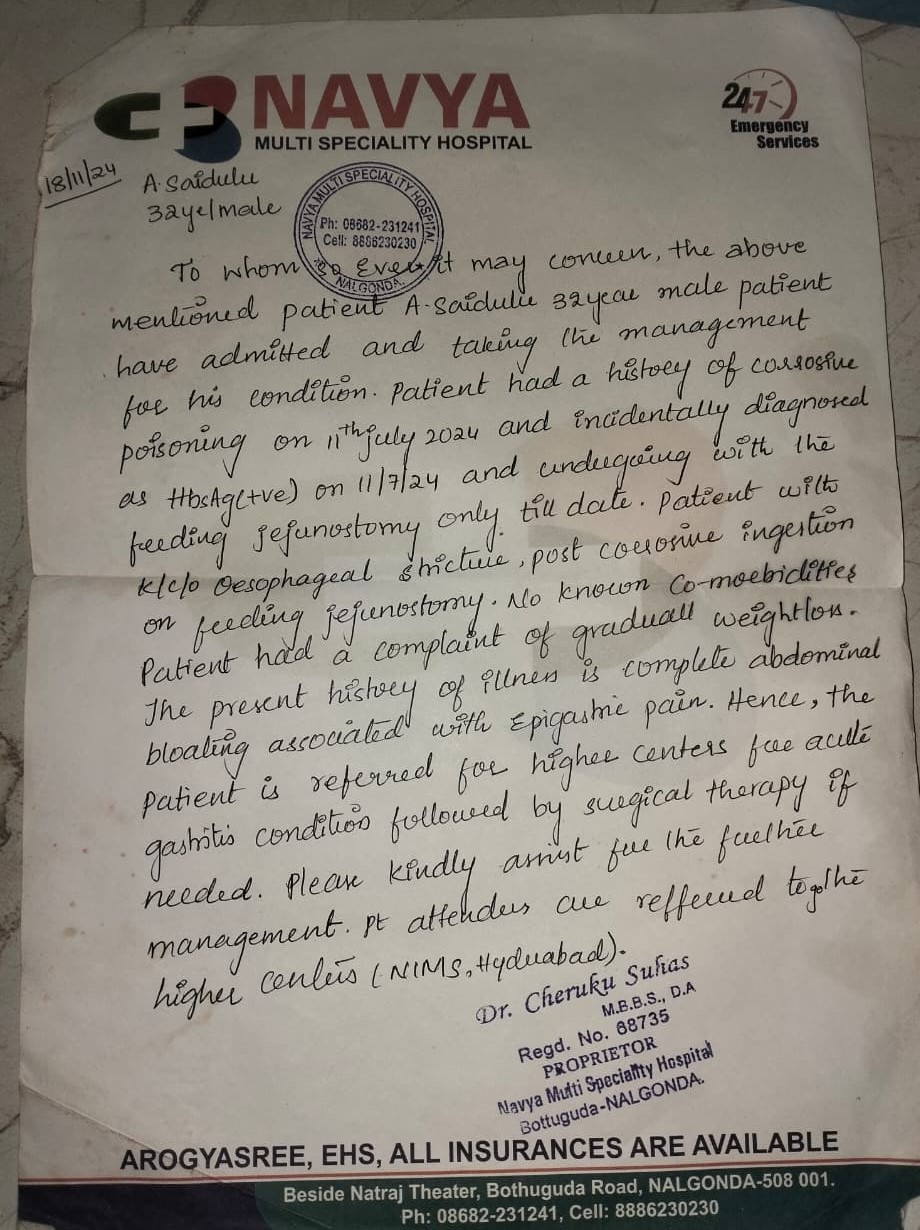 NAVYA
MULTI SPECIALITY HOSPITAL
24-7
Emergency
Services
18/11/24
A. Saidulu
32ye/male
NAVYA MULTI SPECIALITY HOSPITAL
Ph: 08682-231241
Cell: 8886230230
NALGONDA.
To whom so Ever it may concern, the above
mentioned patient A. Saidulu 32year male patient
have admitted and taking the management
for his condition. Patient had a history of corrosive
poisoning on 11th july 2024 and incidentally diagnosed
as HbsAg(+ve) on 11/7/24 and undergoing with the
feeding jejunostomy only till date. Patient with
k/c/o Oesophageal stricture, post corrosive ingestion
on feeding jejunostomy. No known Co-morbidities
Patient had a complaint of graduall weightloss.
The present history of illness is complete abdominal
bloating associated with Epigastric pain. Hence, the
patient is referred for higher centers for acute
gastritis condition followed by surgical therapy if
needed. Please kindly assist for the further
management. Pt attenders are reffered to go the
higher centers (NIMS, Hyderabad).
Dr. Cheruku Suhas
M.B.B.S., D.A
Regd. No. 68735
PROPRIETOR
Navya Multi Speciality Hospital
Bottuguda-NALGONDA.
AROGYASREE, EHS, ALL INSURANCES ARE AVAILABLE
Beside Natraj Theater, Bothuguda Road, NALGONDA-508 001.
Ph: 08682-231241, Cell: 8886230230